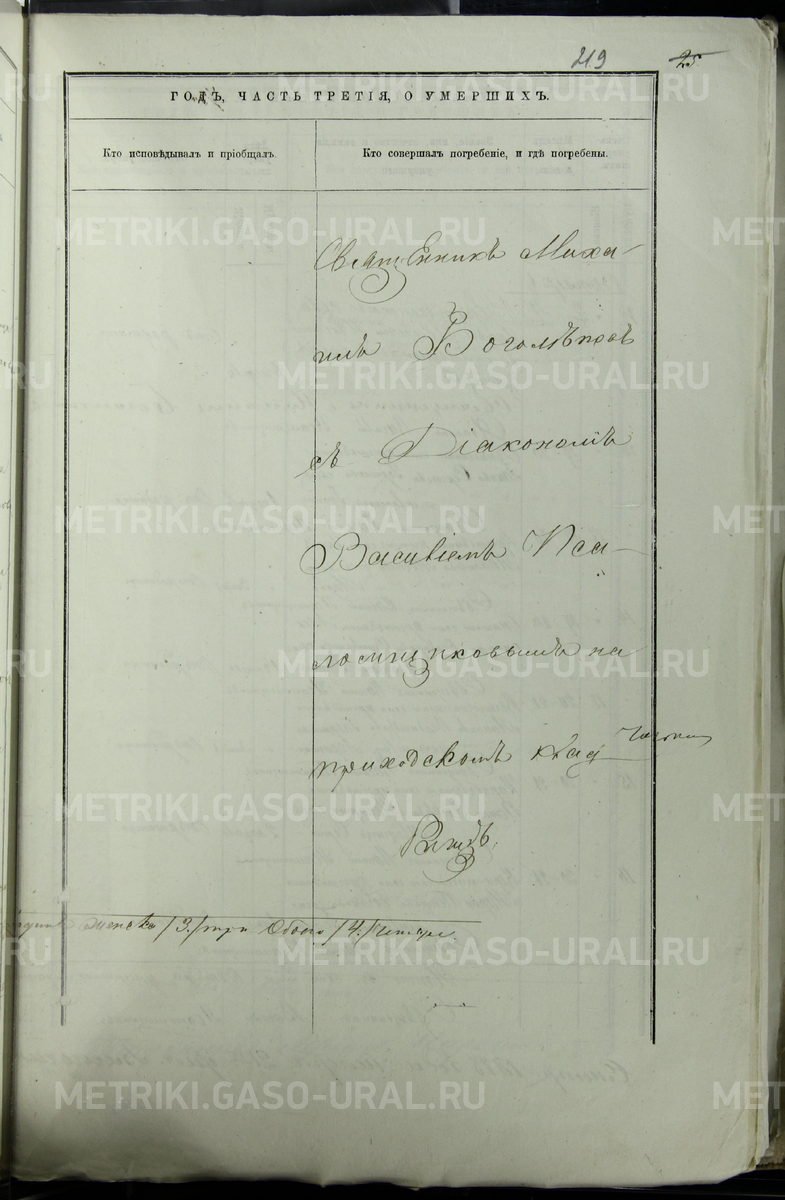 219 25
ГОДЪ, ЧАСТЬ ТРЕТІЯ, О УМЕРШИХЪ.
Кто исповѣдывалъ и пріобщалъ.
Кто совершалъ погребеніе, и гдѣ погребены.
Священникъ Миха-
илъ Боголѣповъ
съ Діакономъ
Василіемъ Пса-
ломщиковымъ на
приходскомъ клад
бищѣ.
женска /3./ три Обоего /4./ четыре.
METRIKI.GASO-URAL.RU